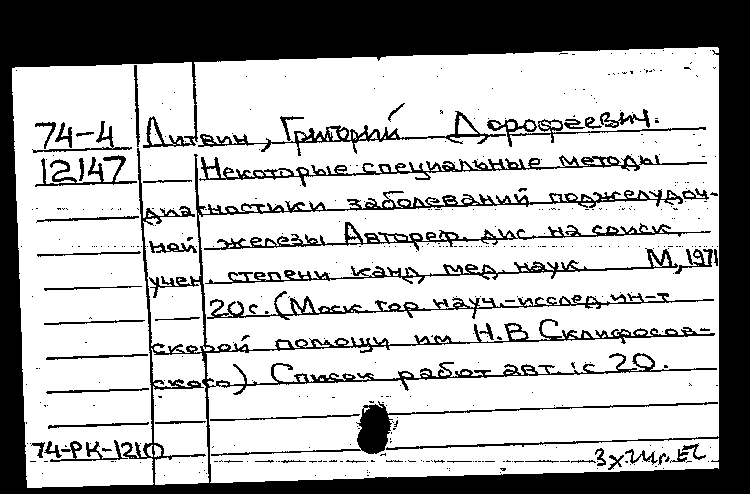 74-4 Литвин, Григорий Дорофеевич.
12147 Некоторые специальные методы
диагностики заболеваний поджелудоч-
ной железы Автореф. дис. на соиск.
учен. степени канд. мед. наук. М, 1971
20с. (Моск гор науч.-исслед. ин-т
скорой помощи им Н.В Склифосов-
ского). Список работ авт. :с 20.
74-РК-1210.